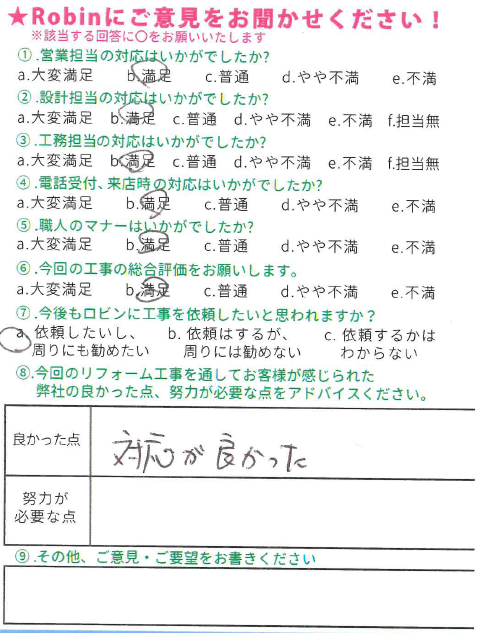 ★Robinにご意見をお聞かせください！
※該当する回答に〇をお願いいたします
①.営業担当の対応はいかがでしたか?
a.大変満足 b.満足 c.普通 d.やや不満 e.不満
②.設計担当の対応はいかがでしたか?
a.大変満足 b.満足 c.普通 d.やや不満 e.不満 f.担当無
③.工務担当の対応はいかがでしたか?
a.大変満足 b.満足 c.普通 d.やや不満 e.不満 f.担当無
④.電話受付、来店時の対応はいかがでしたか?
a.大変満足 b.満足 c.普通 d.やや不満 e.不満
⑤.職人のマナーはいかがでしたか?
a.大変満足 b.満足 c.普通 d.やや不満 e.不満
⑥.今回の工事の総合評価をお願いします。
a.大変満足 b.満足 c.普通 d.やや不満 e.不満
⑦.今後もロビンに工事を依頼したいと思われますか？
a. 依頼したいし、 b. 依頼はするが、 c. 依頼するかは
周りにも勧めたい 周りには勧めない わからない
⑧.今回のリフォーム工事を通してお客様が感じられた
弊社の良かった点、努力が必要な点をアドバイスください。
良かった点 対応が良かった
努力が
必要な点
⑨.その他、ご意見・ご要望をお書きください